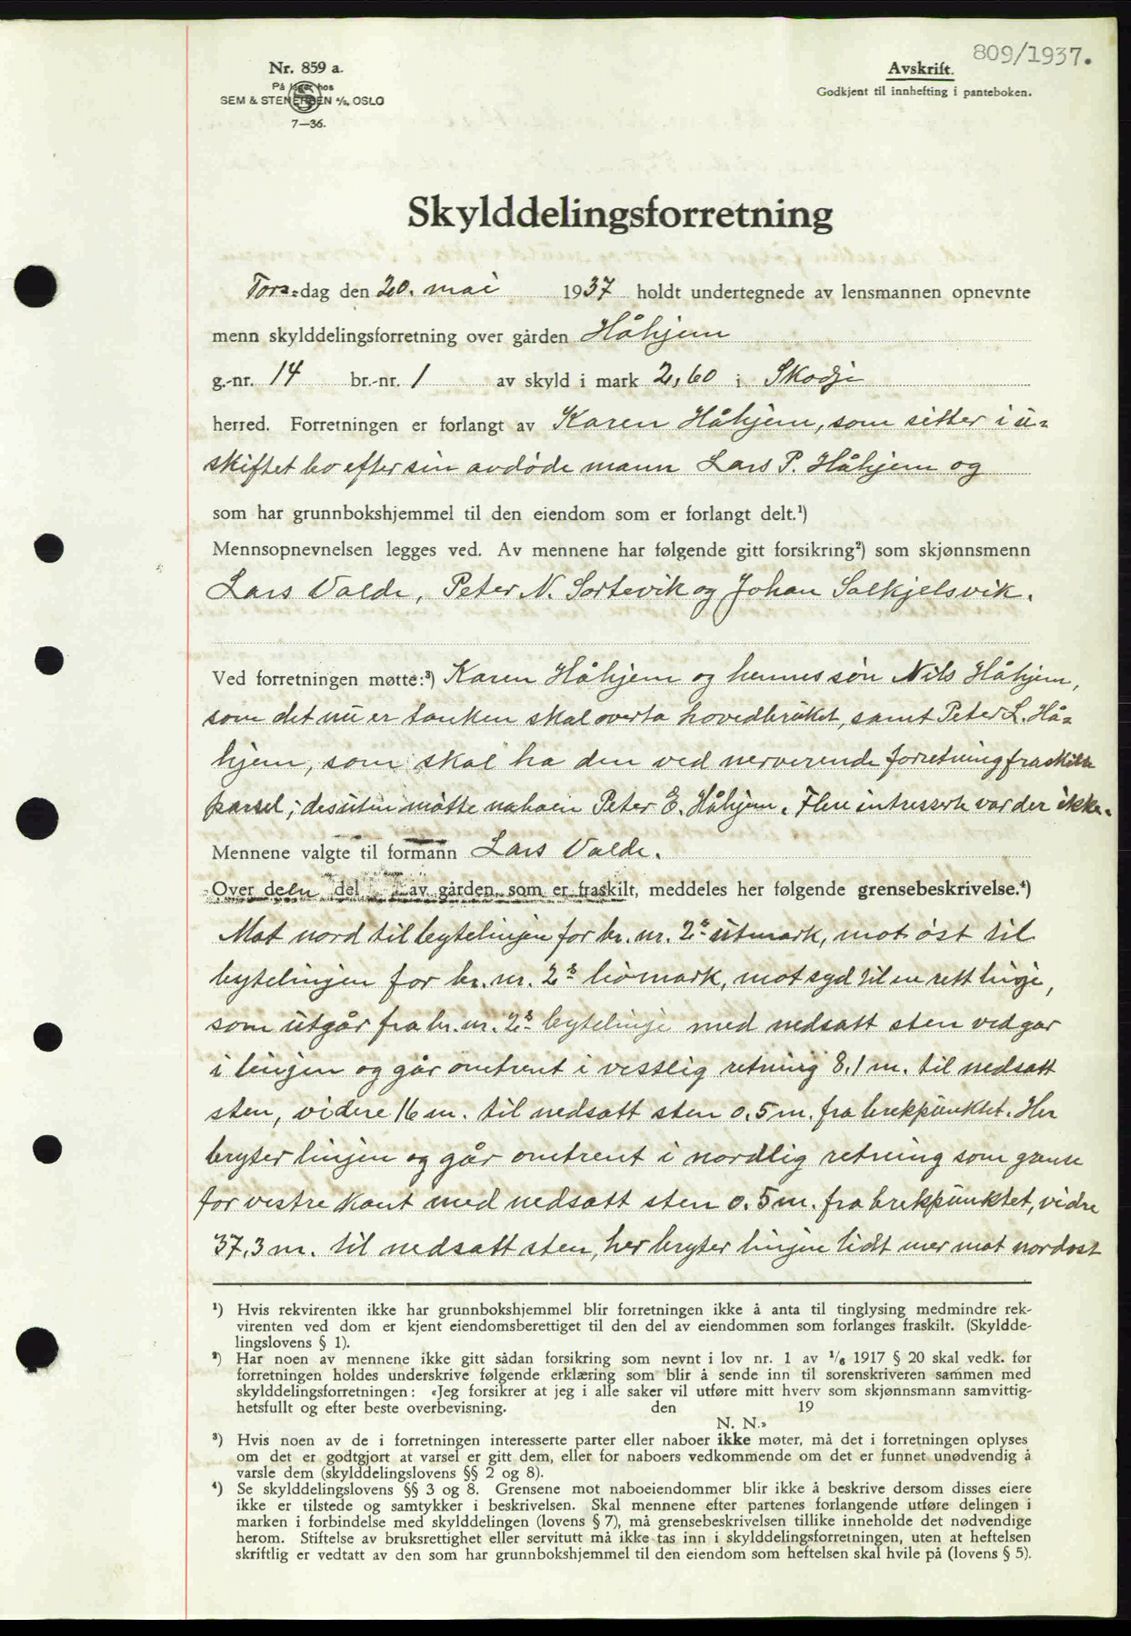 809/1937.
Nr. 859 a.
På lager hos
SEM & STENERSEN A/S, OSLO
7—36.
Avskrift.
Godkjent til innhefting i panteboken.
Skylddelingsforretning
Tors-dag den 20. mai 1937 holdt undertegnede av lensmannen opnevnte
menn skylddelingsforretning over gården Håhjem
g.-nr. 14 br.-nr. 1 av skyld i mark 2,60 i Skodje
herred. Forretningen er forlangt av Karen Håhjem, som sitter i u-
skiftet bo efter sin avdøde mann Lars P. Håhjem og
som har grunnbokshjemmel til den eiendom som er forlangt delt.¹)
Mennsopnevnelsen legges ved. Av mennene har følgende gitt forsikring²) som skjønnsmenn
Lars Valde, Peter N. Sortevik og Johan Solkjelsvik.
Ved forretningen møtte:³) Karen Håhjem og hennes søn Nils Håhjem,
som det nu er tanken skal overta hovedbruket, samt Peter L. Hå-
hjem, som skal ha den ved nerverende forretning fraskilte
parsel; desuten møtte naboen Peter E. Håhjem. Flere intresserte var der ikke.
Mennene valgte til formann Lars Valde.
Over den del av gården som er fraskilt, meddeles her følgende grensebeskrivelse.⁴)
Mot nord til bytelinjen for br. nr. 2s utmark, mot øst til
bytelinjen for br. nr. 2s bømark, mot syd til en rett linje,
som utgår fra br. nr. 2s bytelinje med nedsatt sten ved gar
i linjen og går omtrent i vestlig retning 8.1 m. til nedsatt
sten, videre 16 m. til nedsatt sten 0.5 m. fra brekpunktet. Her
bryter linjen og går omtrent i nordlig retning som grense
for vestre kant med nedsatt sten 0.5 m. fra brekpunktet, vidre
37.3 m. til nedsatt sten, her bryter linjen lidt mer mot nordost
¹) Hvis rekvirenten ikke har grunnbokshjemmel blir forretningen ikke å anta til tinglysing medmindre rek-
virenten ved dom er kjent eiendomsberettiget til den del av eiendommen som forlanges fraskilt. (Skyldde-
lingslovens § 1).
²) Har noen av mennene ikke gitt sådan forsikring som nevnt i lov nr. 1 av ¹/₆ 1917 § 20 skal vedk. før
forretningen holdes underskrive følgende erklæring som blir å sende inn til sorenskriveren sammen med
skylddelingsforretningen: «Jeg forsikrer at jeg i alle saker vil utføre mitt hverv som skjønnsmann samvittig-
hetsfullt og efter beste overbevisning. den 19
N. N.»
³) Hvis noen av de i forretningen interesserte parter eller naboer ikke møter, må det i forretningen oplyses
om det er godtgjort at varsel er gitt dem, eller for naboers vedkommende om det er funnet unødvendig å
varsle dem (skylddelingslovens §§ 2 og 8).
⁴) Se skylddelingslovens §§ 3 og 8. Grensene mot naboeiendommer blir ikke å beskrive dersom disses eiere
ikke er tilstede og samtykker i beskrivelsen. Skal mennene efter partenes forlangende utføre delingen i
marken i forbindelse med skylddelingen (lovens § 7), må grensebeskrivelsen tillike inneholde det nødvendige
herom. Stiftelse av bruksrettighet eller servitutt må ikke tas inn i skylddelingsforretningen, uten at heftelsen
skriftlig er vedtatt av den som har grunnbokshjemmel til den eiendom som heftelsen skal hvile på (lovens § 5).